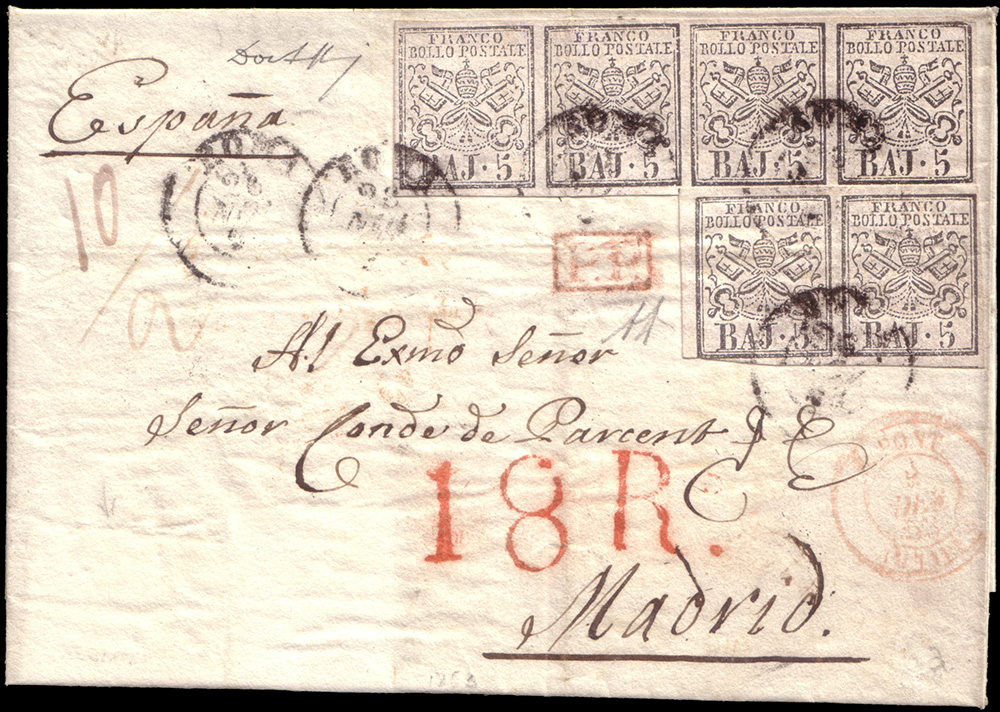 España
FRANCO
BOLLO POSTALE
BAJ·5
FRANCO
BOLLO POSTALE
BAJ·5
FRANCO
BOLLO POSTALE
BAJ·5
FRANCO
BOLLO POSTALE
BAJ·5
ROMA
ROMA
10
FRANCO
BOLLO POSTALE
BAJ·5
FRANCO
BOLLO POSTALE
BAJ·5
P.P.
Al Exmo Señor
Señor Conde de Parcent
18 R.
PONT
Madrid.